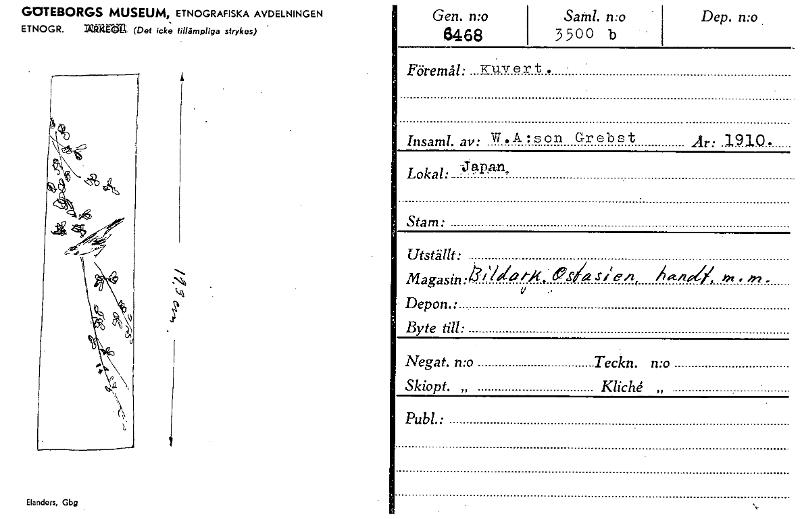 GÖTEBORGS MUSEUM, ETNOGRAFISKA AVDELNINGEN
ETNOGR. ARKEOL. (Det icke tillämpliga strykes)
19,3 cm.
Elanders, Gbg
Gen. n:o Saml. n:o Dep. n:o
6468 3500 b
Föremål: Kuvert.
Insaml. av: W.A:son Grebst År: 1910.
Lokal: Japan.
Stam:
Utställt:
Magasin: Bildark. Ostasien, handt. m.m.
Depon.:
Byte till:
Negat. n:o Teckn. n:o
Skiopt. „ Kliché „
Publ.: